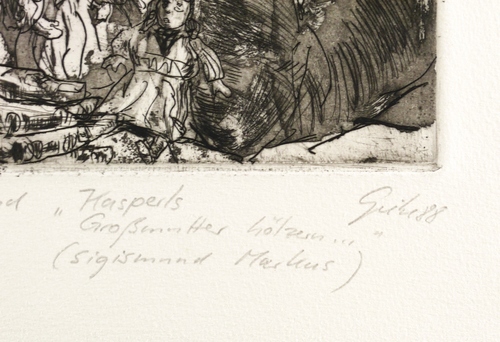 „Kasperls
Großmutter hölzern..."
(Sigismund Markus)